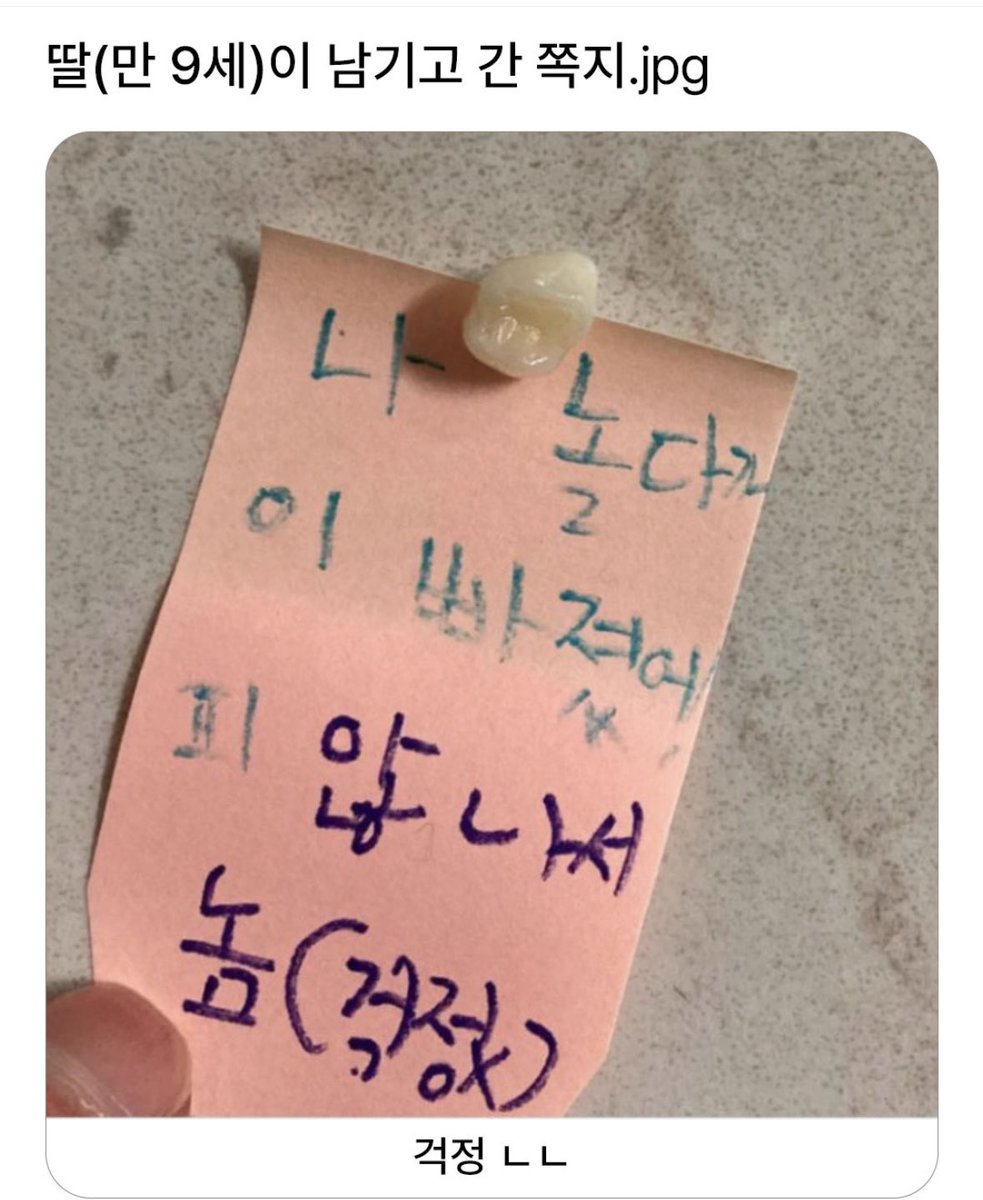 딸(만 9세)이 남기고 간 쪽지.jpg
나 놀다가
이 빠졌어
피 않 나서
놈(걱정X)
걱정 ㄴㄴ